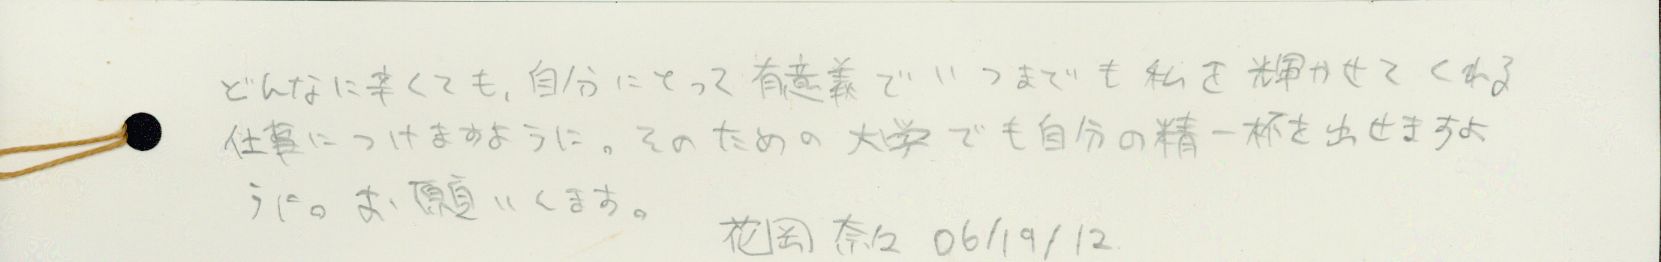 どんなに辛くても、自分にとって有意義でいつまでも私を輝かせてくれる
仕事につけますように。そのための大学でも自分の精一杯を出せますよ
うに。お願いします。
花岡 奈々 06/19/12